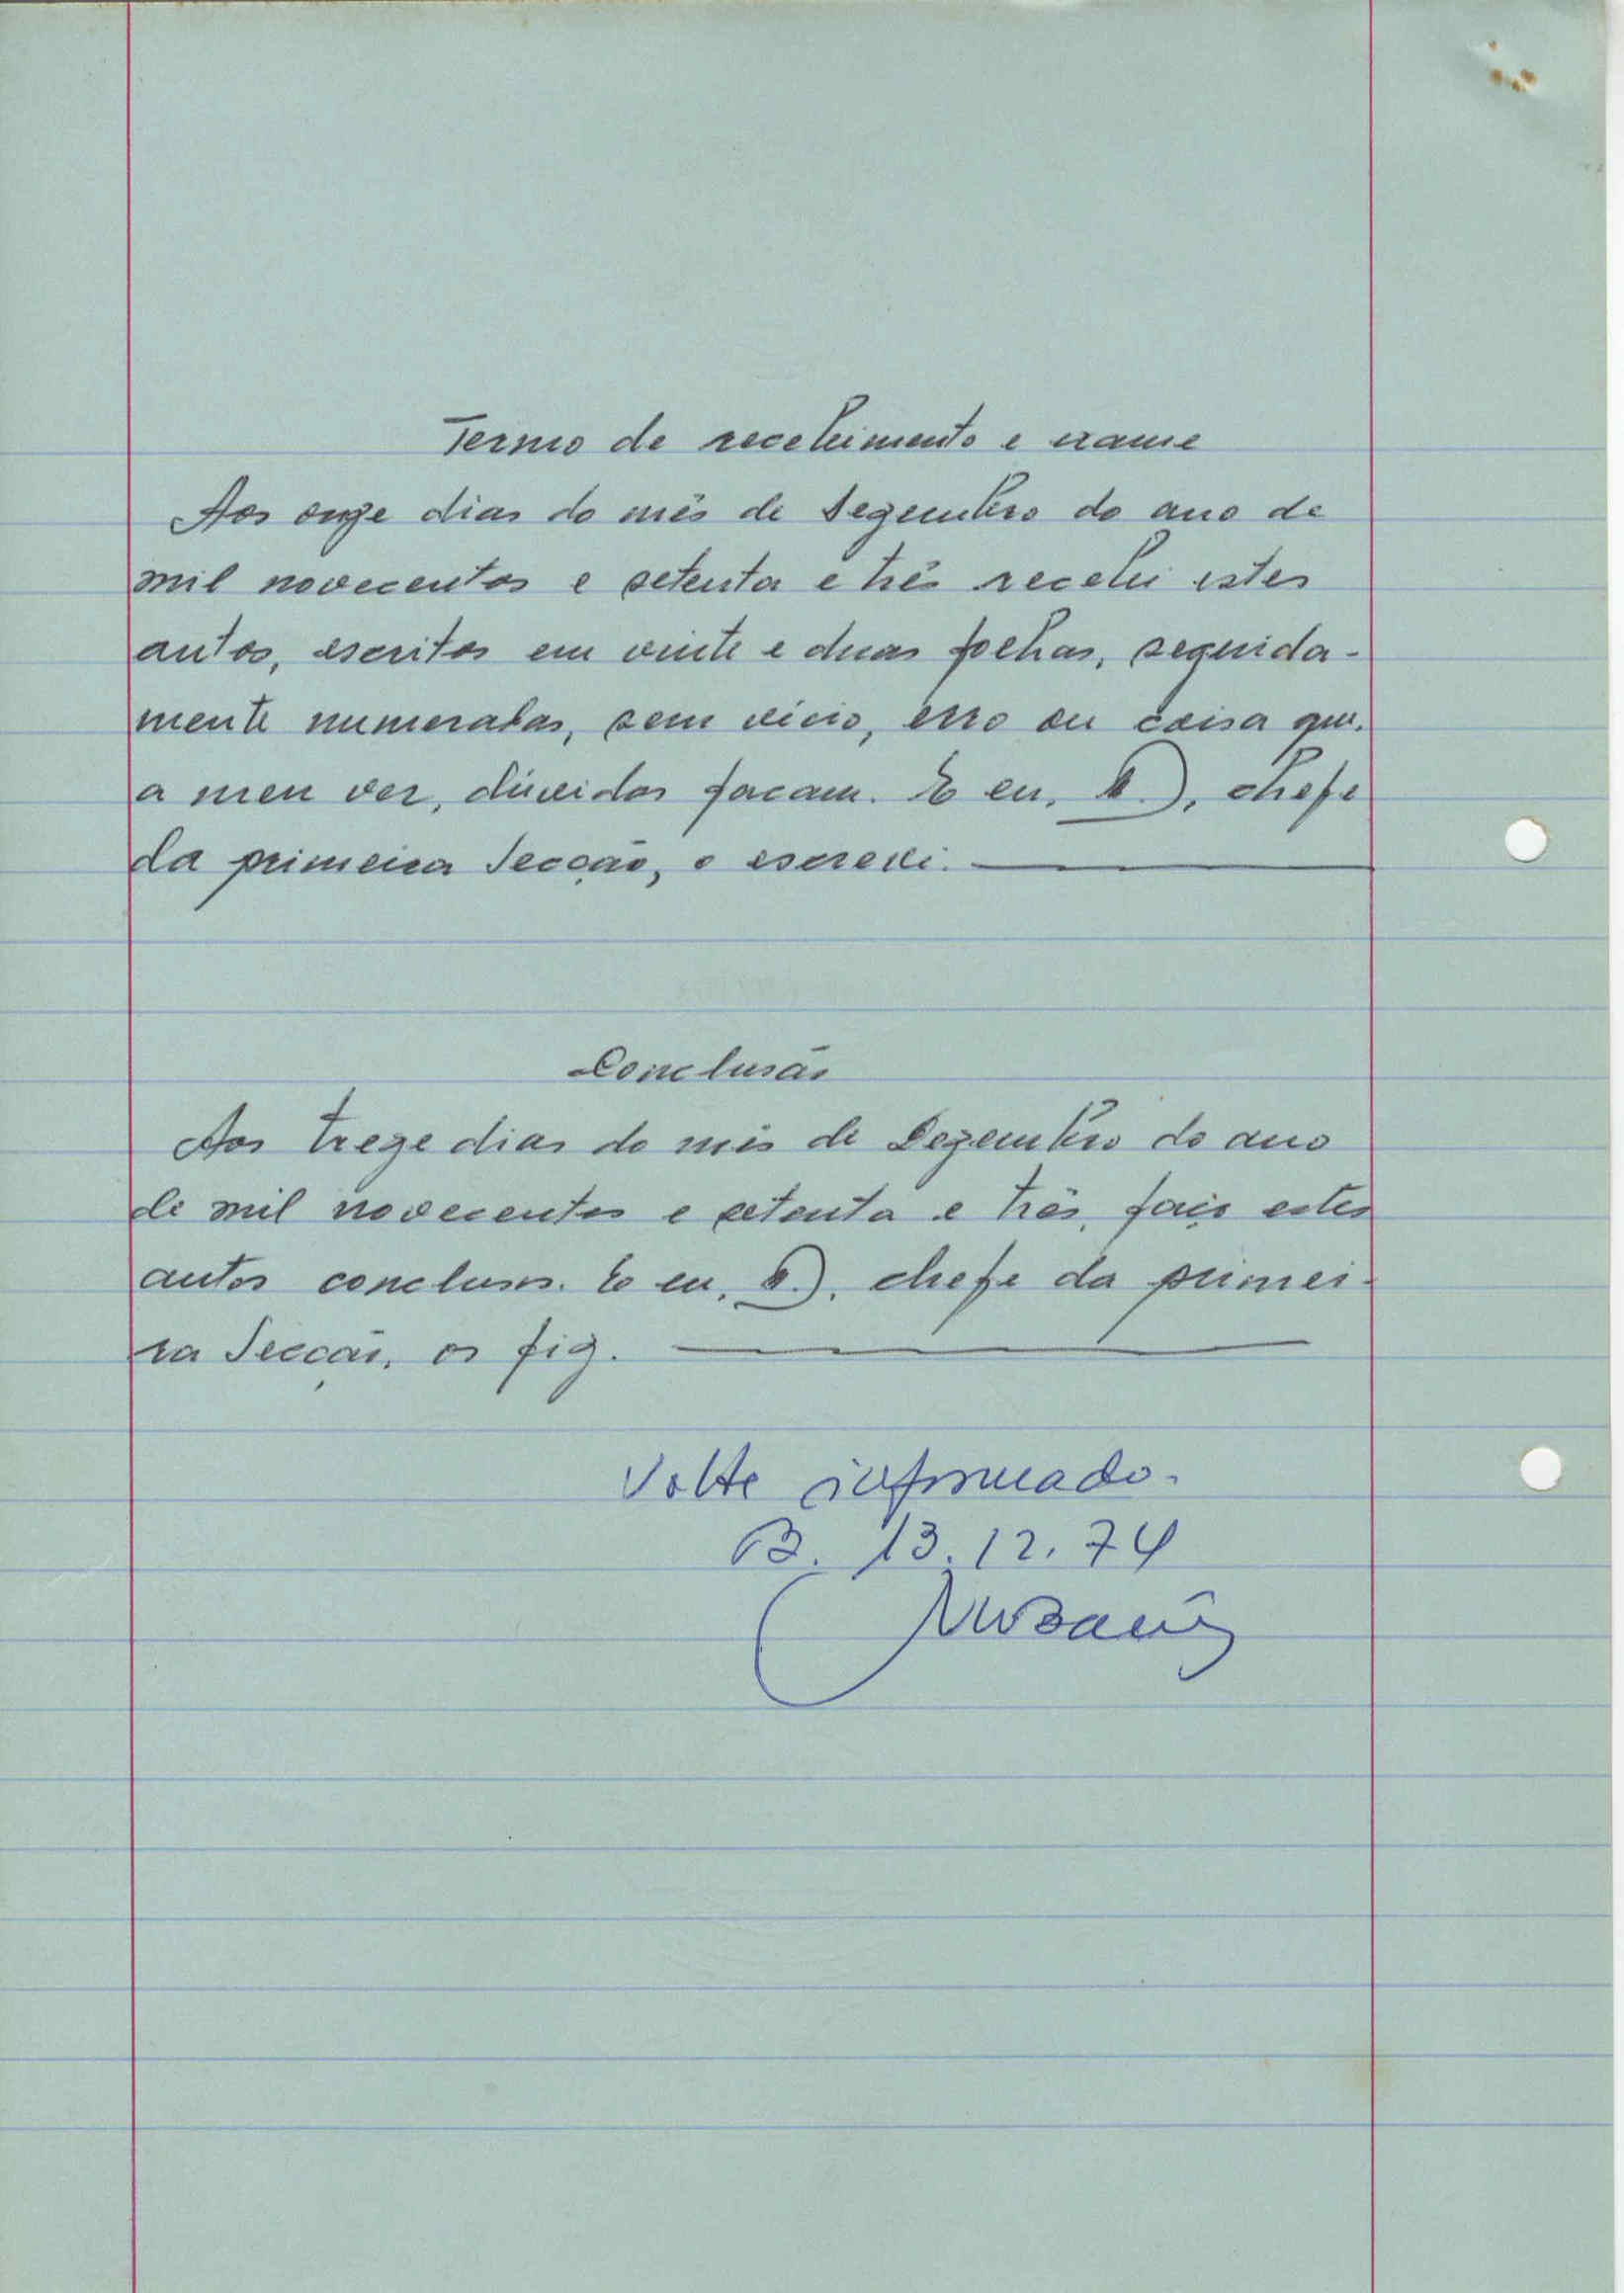 Termo de recebimento e exame
Aos onze dias do mês de Dezembro do ano de
mil novecentos e setenta e três recebi estes
autos, escritos em vinte e duas folhas, seguida-
mente numeradas, sem vício, erro ou coisa que,
a meu ver, dúvidas façam. E eu, chefe
da primeira Secção, o escrevi.
Conclusão
Aos treze dias do mês de Dezembro do ano
de mil novecentos e setenta e três, faço estes
autos conclusos. E eu, chefe da primei-
ra Secção, os fiz.
Volte informado.
B. 13.12.74